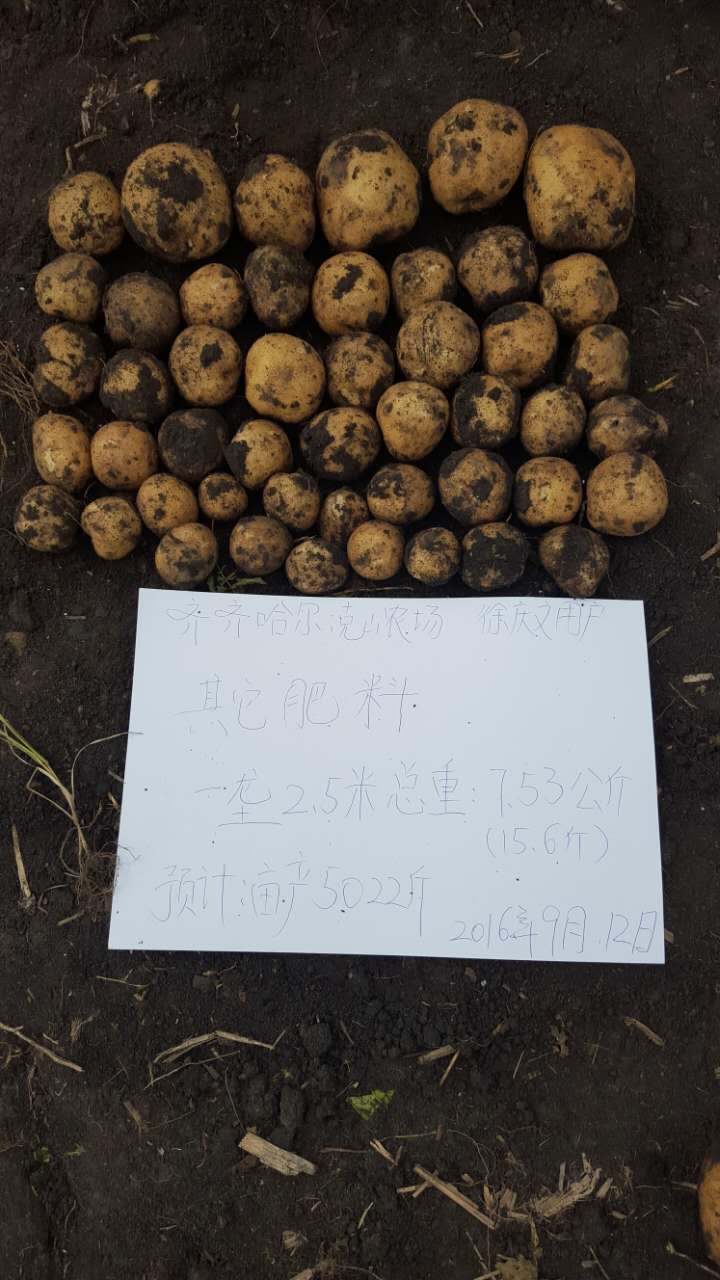 齐齐哈尔克山农场 徐庆文用户
其它肥料
一垄2.5米总重:7.53公斤
(15.6斤)
预计亩产5022斤
2016年9月12日